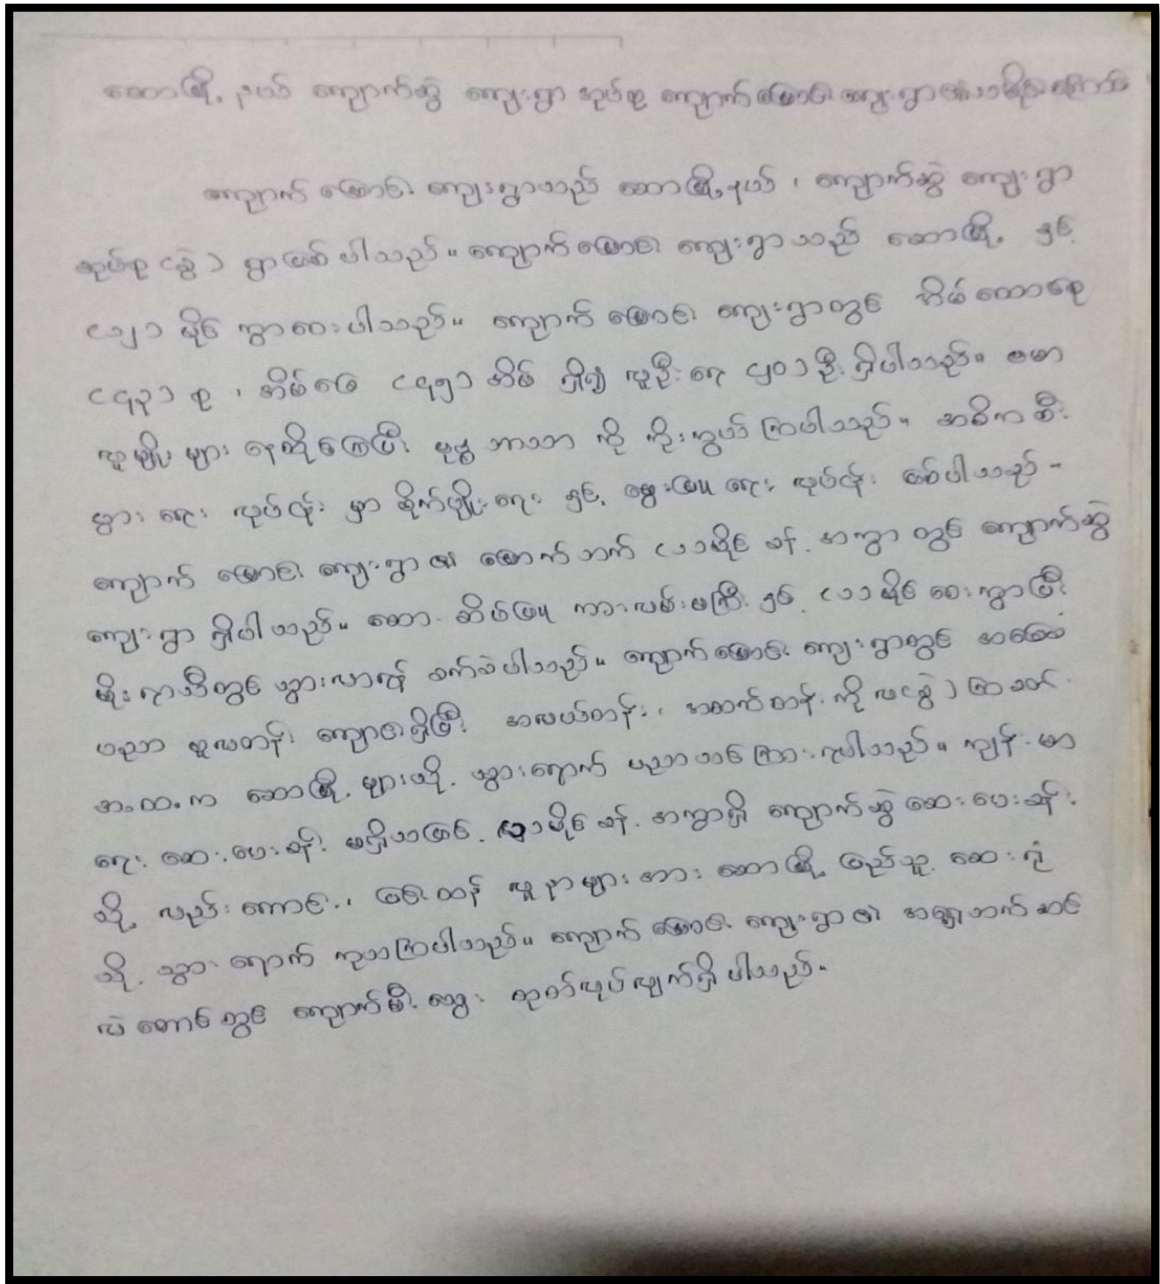 ဆောမြို့နယ် ကျောက်ဆွဲ ကျေးရွာအုပ်စု ကျောက်မြောင်း ကျေးရွာ၏သမိုင်းကြောင်း
ကျောက်မြောင်း ကျေးရွာသည် ဆောမြို့နယ်၊ ကျောက်ဆွဲ ကျေးရွာ
အုပ်စု (ခွဲ) ရွာဖြစ်ပါသည်။ ကျောက်မြောင်း ကျေးရွာသည် ဆောမြို့ နှင့်
မိုင် ကွာဝေးပါသည်။ ကျောက်မြောင်း ကျေးရွာတွင် အိမ်ထောင်စု
စု၊ အိမ်ခြေ အိမ် ရှိ၍ လူဦးရေ ဦး ရှိပါသည်။ ဗမာ
လူမျိုးများ နေထိုင်ကြပြီး ဗုဒ္ဓဘာသာ ကို ကိုးကွယ်ကြပါသည်။ အဓိက စီး
ပွားရေး လုပ်ငန်းမှာ စိုက်ပျိုးရေး နှင့် မွေးမြူရေး လုပ်ငန်း ဖြစ်ပါသည်။
ကျောက်မြောင်း ကျေးရွာ၏ မြောက်ဘက် (၁)မိုင်ခန့် အကွာတွင် ကျောက်ဆွဲ
ကျေးရွာ ရှိပါသည်။ ဆော-ထိမ်မြူ ကားလမ်းမကြီး နှင့် (၁)မိုင် ဝေးကွာပြီး
မိုးရာသီတွင် သွားလာရန် ခက်ခဲပါသည်။ ကျောက်မြောင်း ကျေးရွာတွင် အခြေခံ
ပညာ မူလတန်း ကျောင်းရှိပြီး အလယ်တန်း၊ အထက်တန်းကို လ(ခွဲ)
အ.ထ.က ဆောမြို့ များသို့ သွားရောက် ပညာသင်ကြားရပါသည်။ ကျန်းမာ
ရေး ဆေးပေးခန်း မရှိသဖြင့် မိုင်ခန့် အကွာရှိ ကျောက်ဆွဲ ဆေးပေးခန်း
သို့ လည်းကောင်း၊ ပြင်းထန် လူနာများအား ဆောမြို့ ပြည်သူ့ ဆေးရုံ
သို့ သွားရောက် ကုသကြပါသည်။ ကျောက်မြောင်း ကျေးရွာ၏ အရှေ့ဘက် ဆင်
လဲတောင်တွင် ကျောက်မီးသွေး ထုတ်လုပ်လျက်ရှိပါသည်။